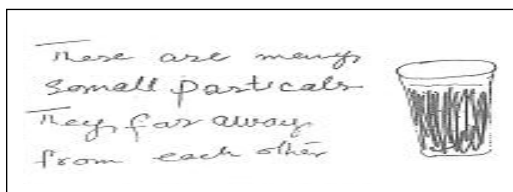 These are meny
Somall pasticals
They far away
from each other